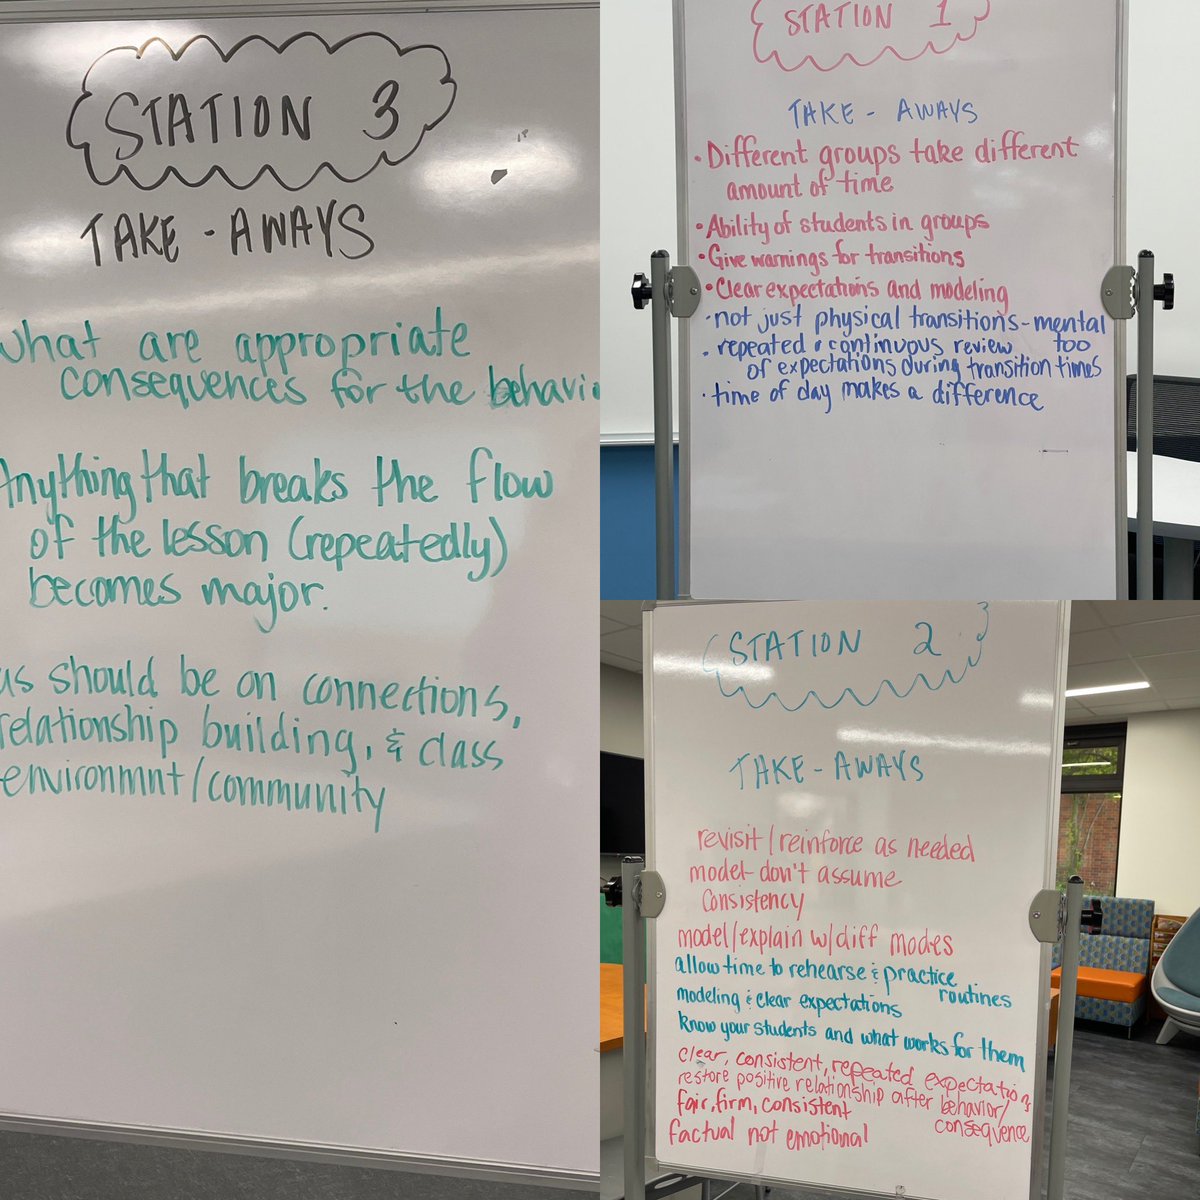 STATION 3
TAKE-AWAYS
what are appropriate
consequences for the
Anything that breaks the flow
of the lesson (repeatedly)
becomes major.
should be on connections,
relationship building, & class
environmnt/community
STATION 1
TAKE - AWAYS
• Different groups take different
amount of time
• Ability of students in groups
• Give warnings for transitions
• Clear expectations and modeling
• not just physical transitions - mental
too
• repeated & continuous review
of expectations during transition times
• time of day makes a difference
STATION 2
TAKE-AWAYS
revisit/reinforce as needed
model- don't assume
Consistency
model/explain w/diff modes
allow time to rehearse & practice
routines
modeling & clear expectations
know your students and what works for them
clear, consistent, repeated expectations
restore positive relationship after behavior/
consequence
fair, firm, consistent
factual not emotional